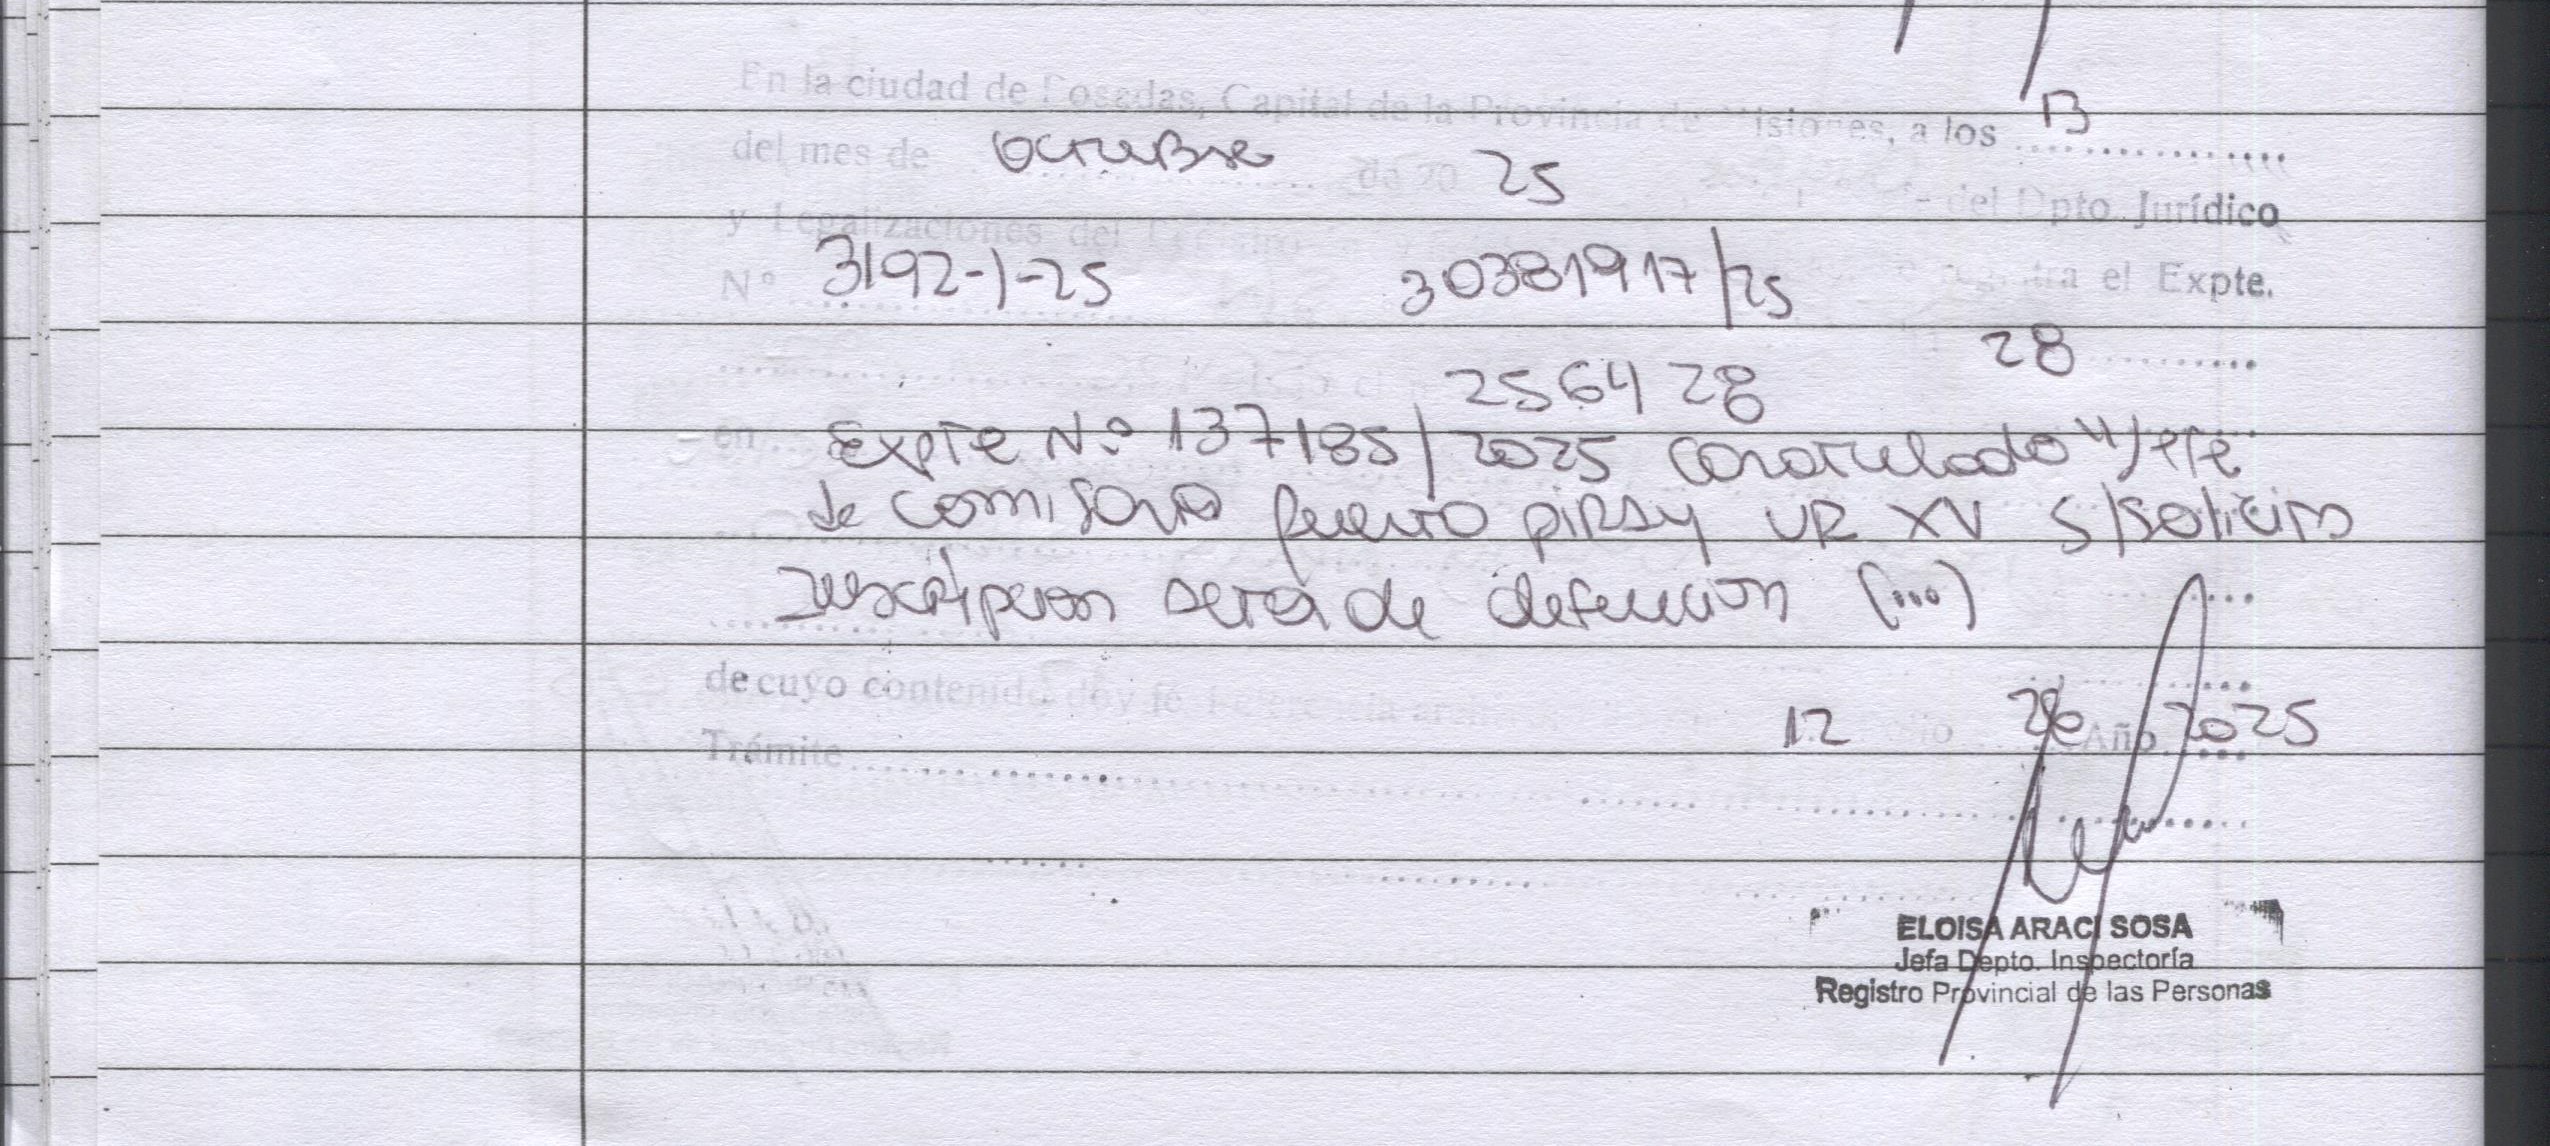 En la ciudad de Posadas, Capital de la Provincia de Misiones, a los 13
del mes de octubre de 20 25 del Dpto. Jurídico
y Legalizaciones del
Nº 3192-1-25 30381917/25 el Expte.
28
256428
en Expte Nº 137185/2025 caratulado "Jefe
de comisaria puerto piray UR XV S/solicita
Inscripcion acta de defuncion (...)
de cuyo contenido doy fe.
12 26 Año 2025
Trámite
ELOISA ARACI SOSA
Jefa Depto. Inspectoría
Registro Provincial de las Personas